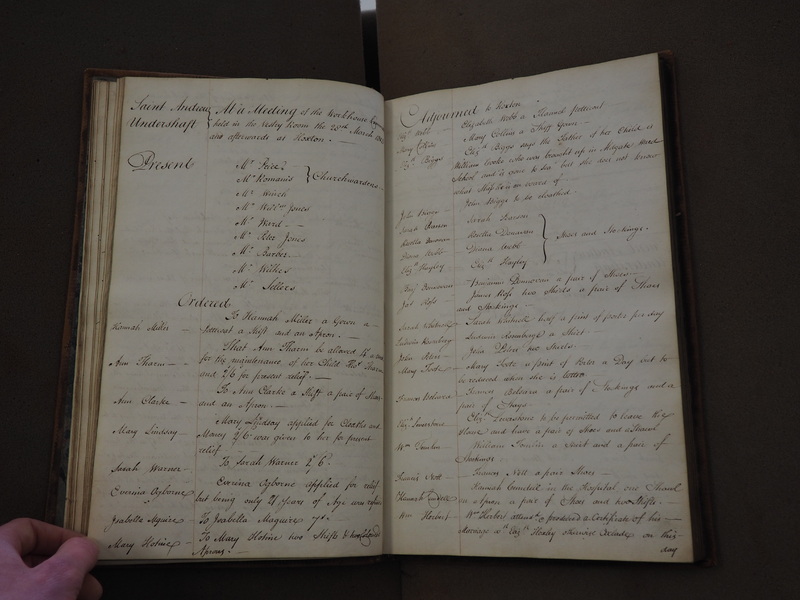 Saint Andrew
Undershaft
At a Meeting of the Workhouse
held in the Vestry Room the 20th March
and afterwards at Hoxton.
Present
Mr Price
Mr Romanis
Churchwardens
Mr Winch
Mr Willm Jones
Mr Ward
Mr Peter Jones
Mr Barber
Mr Wilkes
Mr Sellers
Ordered
Hannah Miller
To Hannah Miller a Gown a
petticoat a Shift and an Apron.
Ann Tharm
That Ann Tharm be allowed
for the maintenance of her Child Thos Tharm
and 2/6 for present relief.
Ann Clarke
To Ann Clarke a Shift a pair of Shoes
and an Apron.
Mary Lindsey
Mary Lindsey applied for Cloaths and
Money 2/6 was given to her for present
relief
Sarah Warner
To Sarah Warner 2/6.
Everina Ogborne
Everina Ogborne applied for relief
but being only 21 Years of Age was
Isabella Maguire
To Isabella Maguire
Mary Hotine
To Mary Hotine two Shifts &
Aprons.
Adjourned to Hoxton
Elizth Webb
Elizabeth Webb a Flannel petticoat
Mary Collins
Mary Collins a Stuff Gown.
Elizth Biggs
Elizth Biggs says the Father of her Child is
William Cooke who was brought up in Ward
School and is gone to Sea but she does not know
what Ship he is on board of
John Biggs to be cloathed.
Sarah Pearson
Sarah Pearson
Martha Donavan
Martha Donavan
Diana Webb
Diana Webb
Shoes and Stockings.
Elizth Hayley
Elizth Hayley
Benj Donnavan
Benjamin Donnavan a pair of Shoes
Jas Ross
James Ross two Shirts a pair of Shoes
and Stockings.
Sarah Whitnick
Sarah Whitnick half a pint of porter per day
a Shirt
John
John two Sheets
Mary Foote
Mary Foote a pint of Porter a Day but to
be reduced when she is better
Frances
Frances a pair of Stockings and a
pair of Stays
Elizth
Elizth to be permitted to leave the
House and have a pair of Shoes and a Shawl
Wm Tomlin
William Tomlin a Shirt and a pair of
Stockings
Francis Nott
Francis Nott a pair Shoes
Hannah
Hannah in the Hospital one Shawl
an Apron a pair of Shoes and two Shifts.
Wm Herbert
Wm Herbert attend & produced a Certificate of his
Marriage wth Elizth on this
day